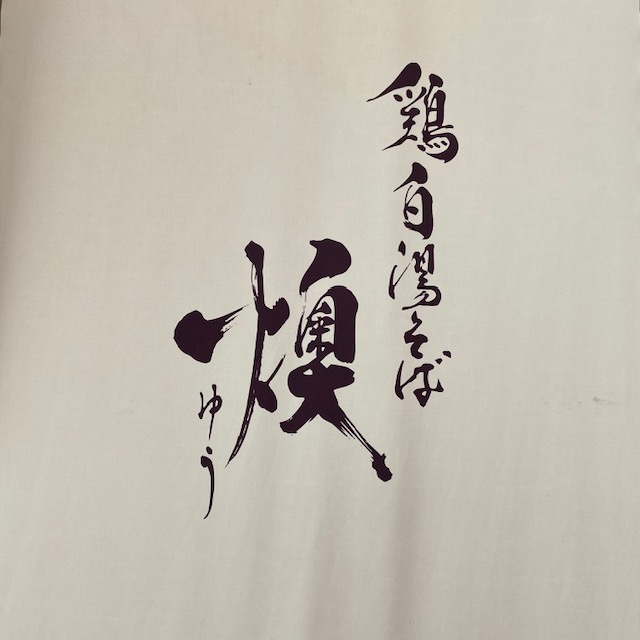 鶏白湯そば
燠
ゆう